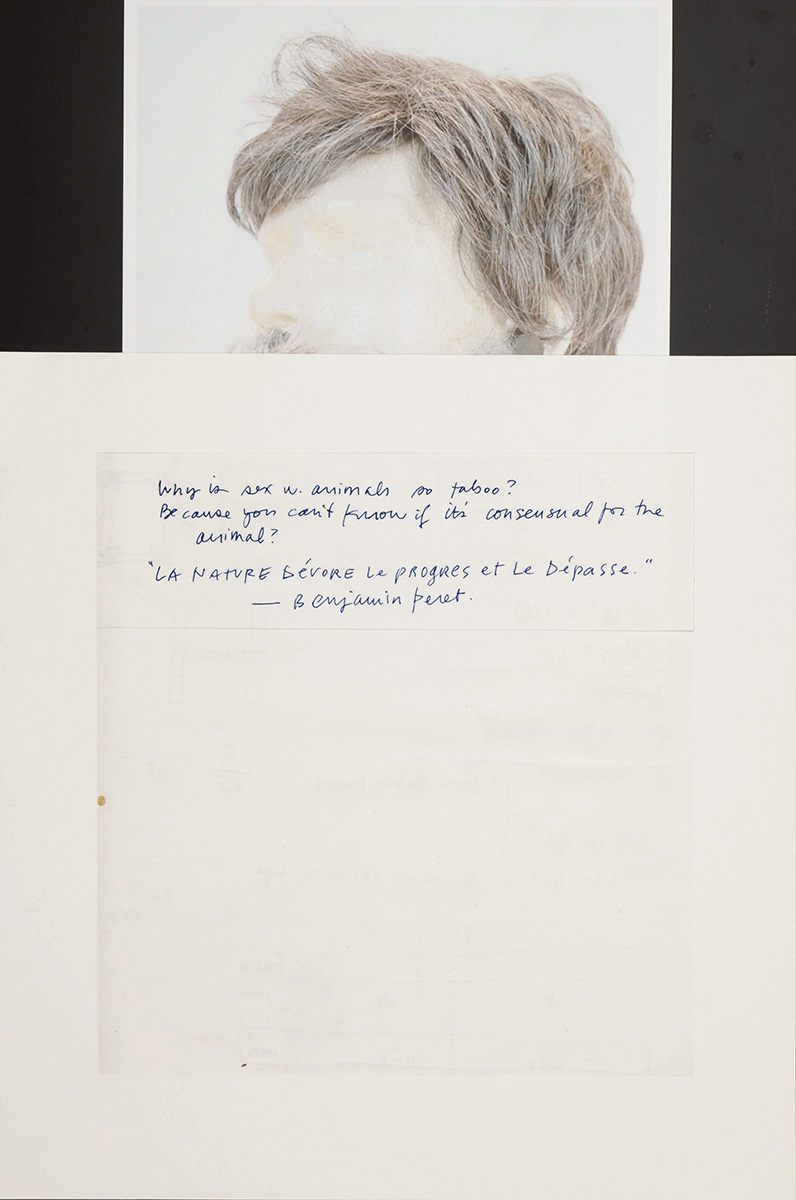 Why is sex w. animals so taboo?
Because you can't know if it's consensual for the
animal?
"LA NATURE DÉVORE Le PROGRES et Le Dépasse."
— Benjamin Peret.